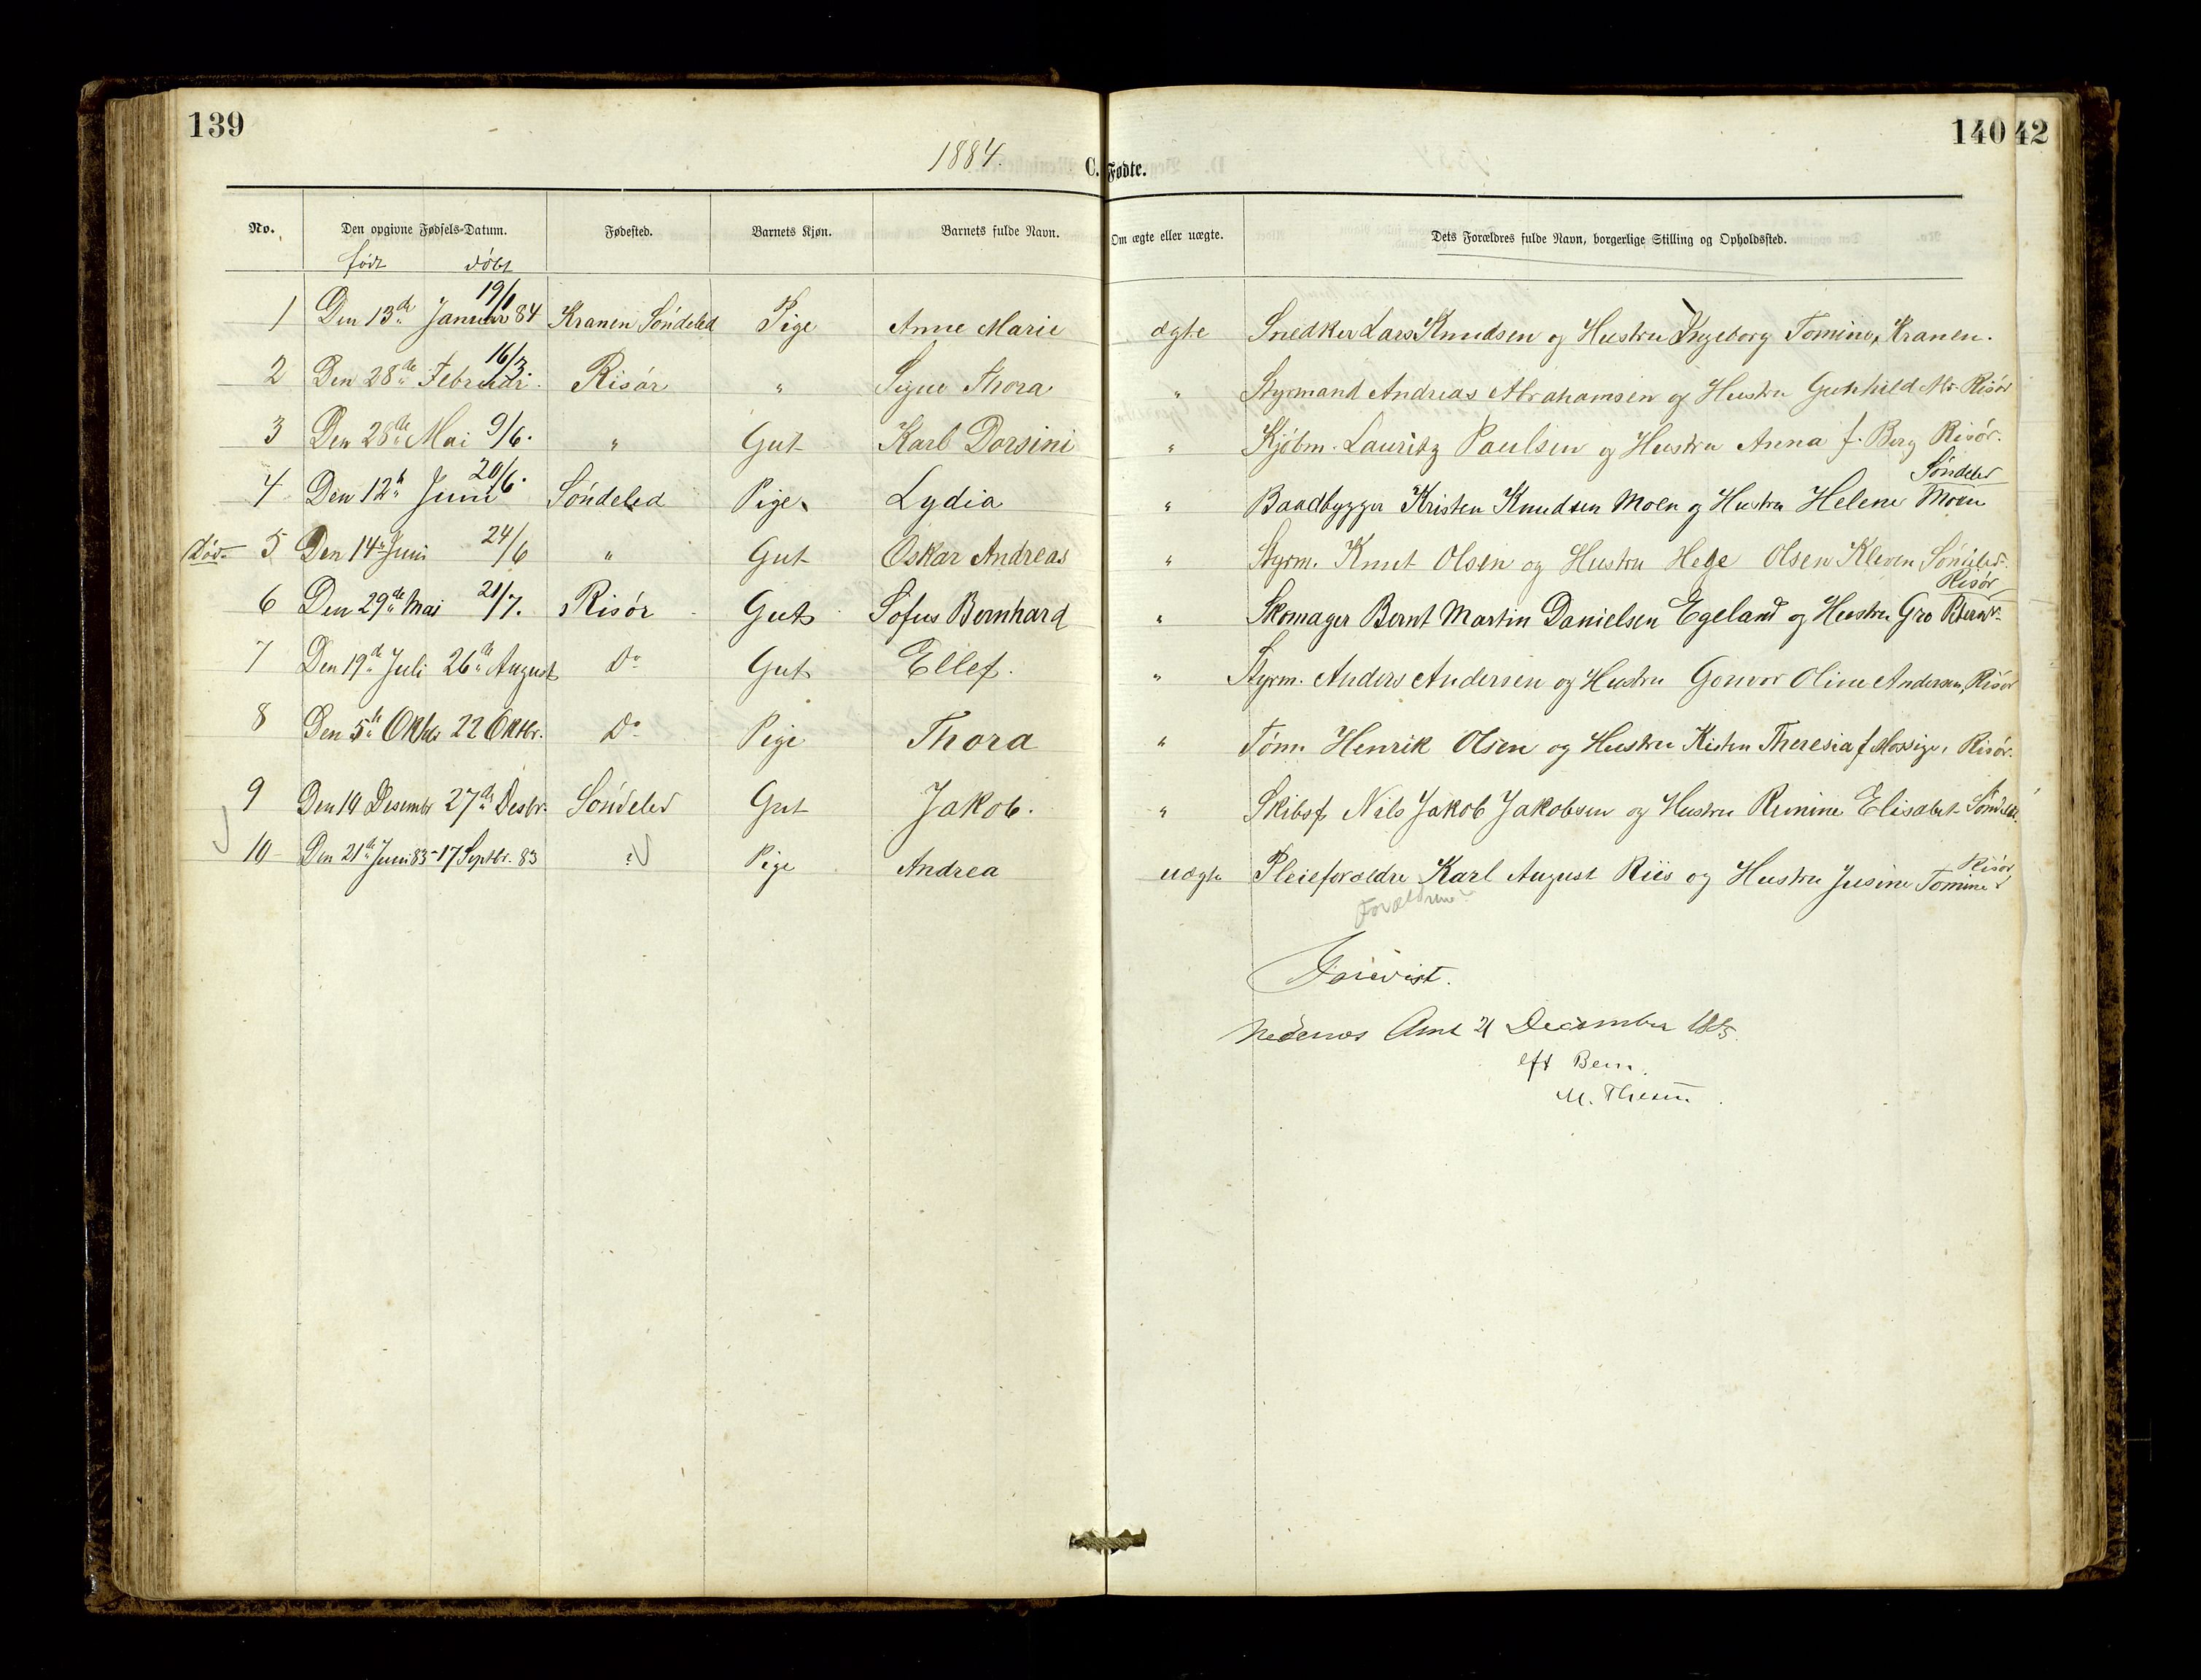 139
140 42
1884.
C. Fødte.
No. Den opgivne Fødsels-Datum. Fødested. Barnets Kjøn. Barnets fulde Navn. Om ægte eller uægte. Dets Forældres fulde Navn, borgerlige Stilling og Opholdssted.
født døbt
19/1
1 Den 13de Januar 84 Kranen Söndeled Pige Anne Marie ægte Snedker Lars Knudsen og Hustru Ingeborg Tomine, Kranen.
16/3
2 Den 28de Februar Risör " Signe Thora " Styrmand Andreas Abrahamsen og Hustru Gunhild Mr. Risör
3 Den 28de Mai 9/6. " Gut Karl Dorsini " Kjöbm. Lauritz Paulsen og Hustru Anna f. Berg Risör.
20/6. Söndeled
4 Den 12te Juni Söndeled Pige Lydia " Baadbygger Kristen Knudsen Moen og Hustru Helene Moen
död 5 Den 14de Juni 24/6 " Gut Oskar Andreas " Styrm. Knut Olsen og Hustru Hege Olsen Kleven Söndeled.
Risör
6 Den 29de Mai 21/7. Risör Gut Sofus Bernhard " Skomager Bernt Martin Danielsen Egeland og Hustru Gro
7 Den 19de Juli 26de August Do Gut Ellef. " Styrm. Anders Andersen og Hustru Gonvor Oline Andersen, Risör
8 Den 5te Oktbr 22 Oktbr. Do Pige Thora " Tömr Henrik Olsen og Hustru Kisten Theresia f Mossige, Risör.
9 Den 10 Desember 27de Desbr. Söndeled Gut Jakob. " Skibsf. Nils Jakob Jakobsen og Hustru Rimine Elisabet Söndeled.
Risör
10 Den 21de Juni 83 - 17 Septbr. 83 " Pige Andrea uægte Pleieforældre Karl August Riis og Hustru Jusine Tomine
Forældrene
Forevist.
Nedenes Amt 21 December 1885.
eft Bem.